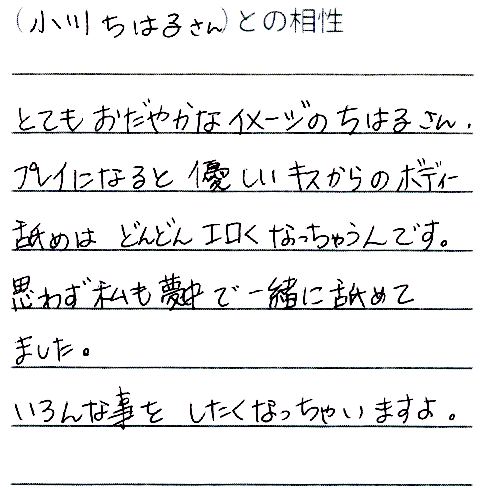 (小川ちはるさん)との相性
とてもおだやかなイメージのちはるさん.
プレイになると優しいキスからのボディー
舐めはどんどんエロくなっちゃうんです。
思わず私も夢中で一緒に舐めて
ました。
いろんな事をしたくなっちゃいますよ。